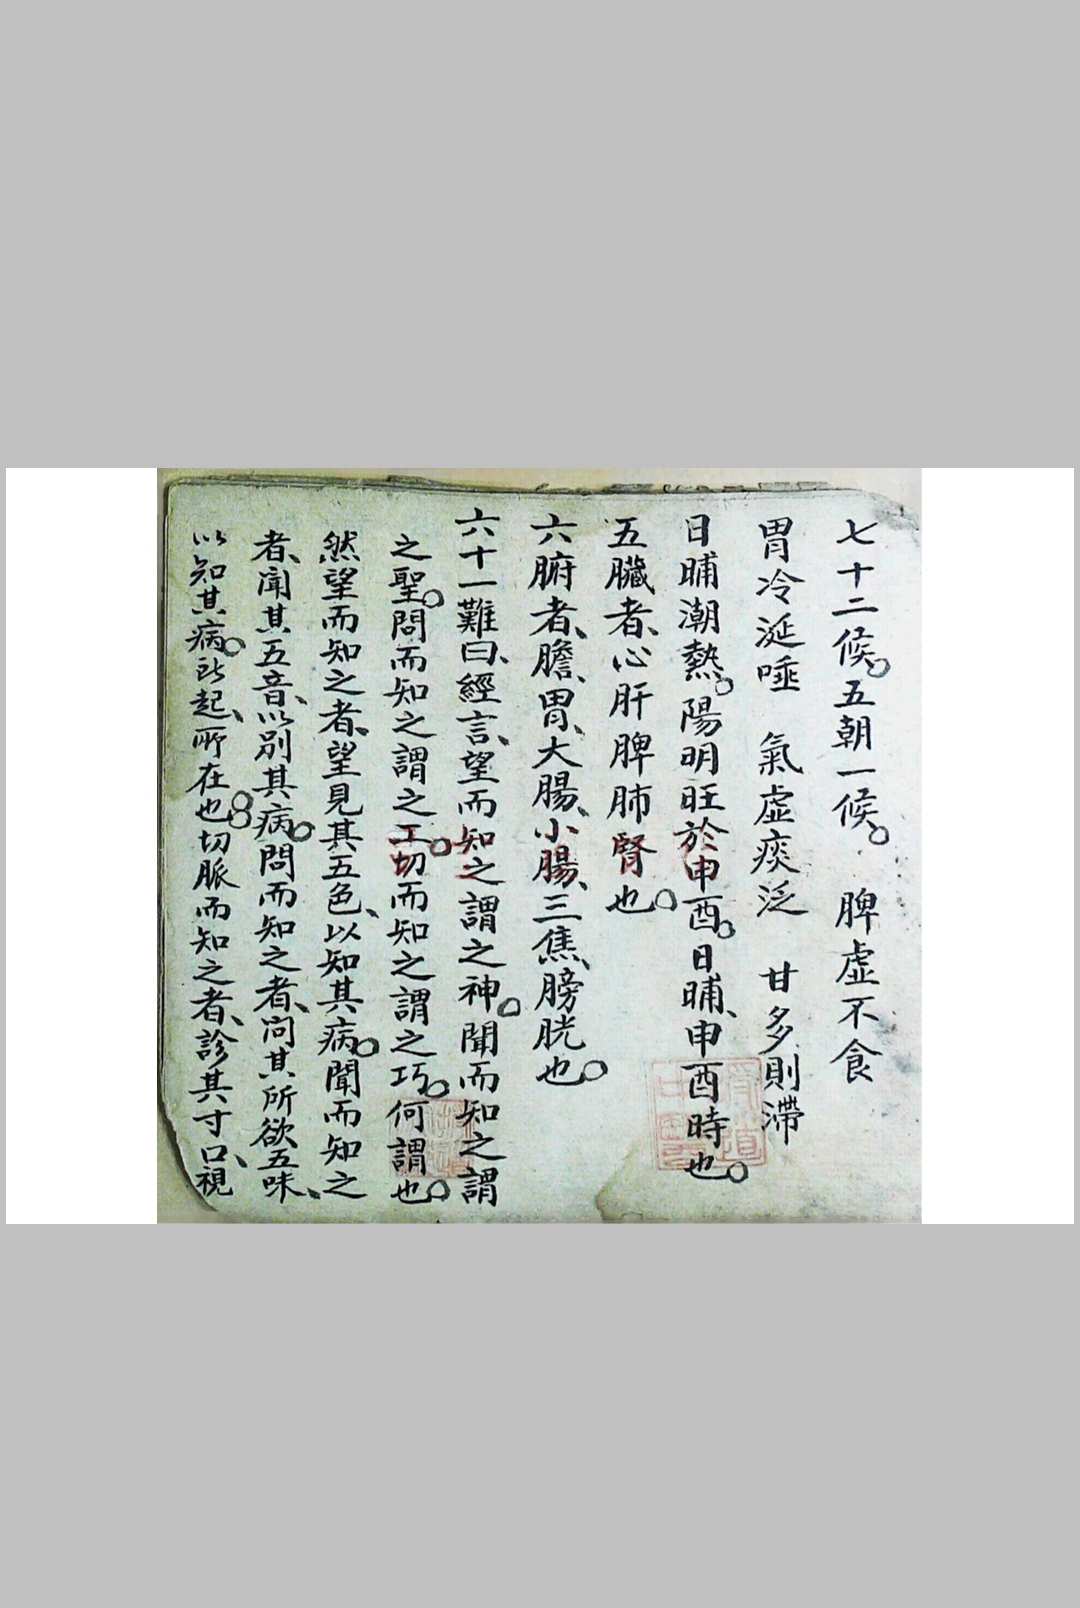 七十二候。五朝一候。　脾虛不食
胃冷涎唾　氣虛痰泛　甘多則滯
日晡潮熱。陽明旺於申酉。日晡、申酉時也。
五臟者、心肝脾肺腎也。
六腑者、膽、胃、大腸、小腸、三焦、膀胱也。
六十一難曰、經言、望而知之謂之神。聞而知之謂
之聖。問而知之謂之工。切而知之謂之巧。何謂也。
然望而知之者、望見其五色、以知其病。聞而知之
者、聞其五音、以別其病。問而知之者、问其所欲五味、
以知其病。所起、所在也。切脈而知之者、診其寸口、視